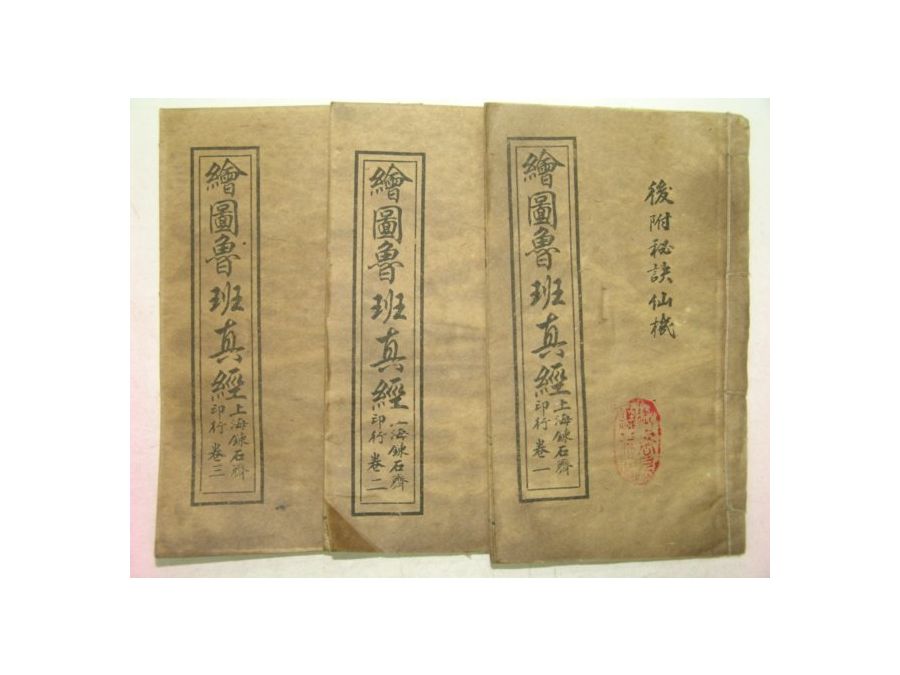 後附秘訣仙機
繪圖魯班真經
上海錬石齋
印行 卷一
繪圖魯班真經
上海錬石齋
印行 卷二
繪圖魯班真經
上海錬石齋
印行 卷三